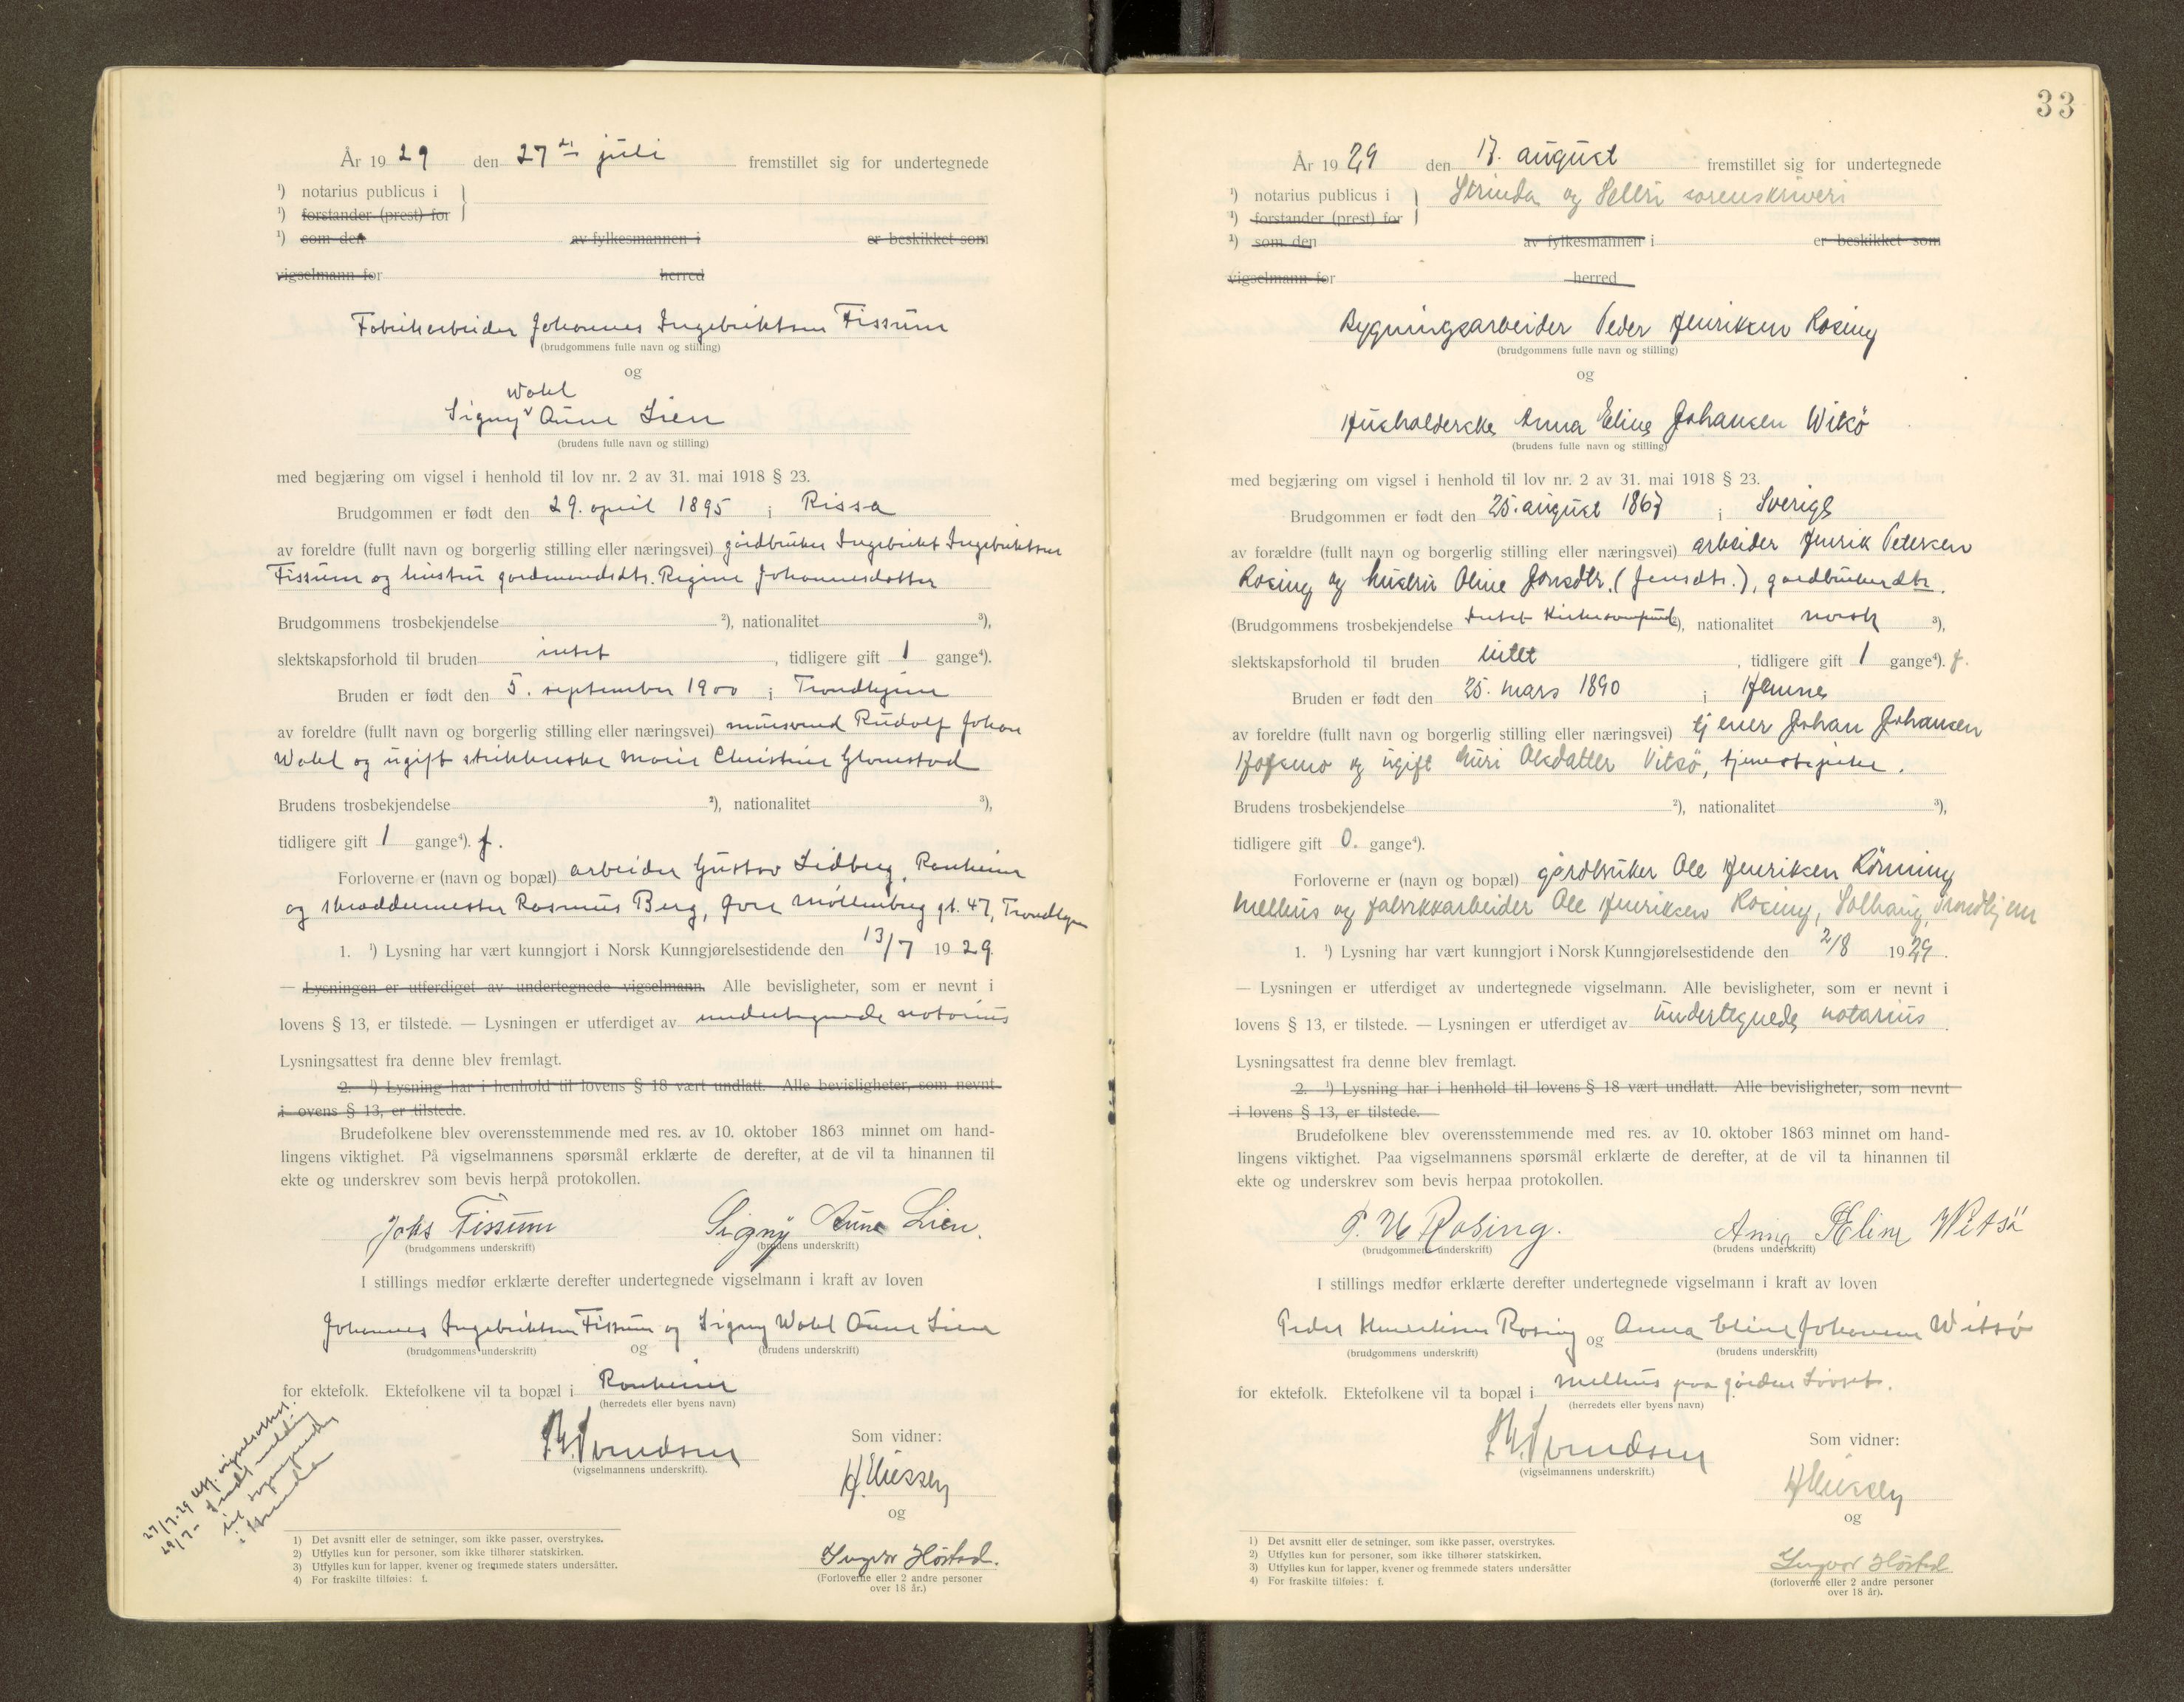 År 1929 den 27de juli fremstillet sig for undertegnede
¹) notarius publicus i
¹) forstander (prest) for
¹) som den av fylkesmannen i er beskikket som
vigselmann for herred
Fabrikarbeider Johannes Ingebriktsen Fissum
(brudgommens fulle navn og stilling)
og
Wold
Signy Aune Lien
(brudens fulle navn og stilling)
med begjæring om vigsel i henhold til lov nr. 2 av 31. mai 1918 § 23.
Brudgommen er født den 29. april 1895 i Rissa
av foreldre (fullt navn og borgerlig stilling eller næringsvei) gårdbruker Ingebrikt Ingebriktsen
Fissum og hustru gardmandsdtr. Regine Johannesdatter
Brudgommens trosbekjendelse ²), nationalitet ³),
slektskapsforhold til bruden intet, tidligere gift 1 gange⁴).
Bruden er født den 5. september 1900 i Trondhjem
av foreldre (fullt navn og borgerlig stilling eller næringsvei) mursvend Rudolf Johan
Wold og ugift strikkerske Marie Christine Glomstad
Brudens trosbekjendelse ²), nationalitet ³),
tidligere gift 1 gange⁴). f.
Forloverne er (navn og bopæl) arbeider Gustav Lidberg, Ranheim
og skreddermester Rasmus Berg, Øvre Møllenberg gt. 47, Trondhjem
1. ¹) Lysning har vært kunngjort i Norsk Kunngjørelsestidende den 13/7 1929.
— Lysningen er utferdiget av undertegnede vigselmann. Alle bevisligheter, som er nevnt i
lovens § 13, er tilstede. — Lysningen er utferdiget av undertegnede notarius
Lysningsattest fra denne blev fremlagt.
2. ¹) Lysning har i henhold til lovens § 18 vært undlatt. Alle bevisligheter, som nevnt
i ovens § 13, er tilstede.
Brudefolkene blev overensstemmende med res. av 10. oktober 1863 minnet om hand-
lingens viktighet. På vigselmannens spørsmål erklærte de derefter, at de vil ta hinannen til
ekte og underskrev som bevis herpå protokollen.
Johs Fissum Signy Aune Lien.
(brudgommens underskrift) (brudens underskrift)
I stillings medfør erklærte derefter undertegnede vigselmann i kraft av loven
Johannes Ingebriktsen Fissum og Signy Wold Aune Lien
(brudgommens underskrift) og (brudens underskrift)
for ektefolk. Ektefolkene vil ta bopæl i Ranheim
(herredets eller byens navn)
Svendsen
(vigselmannens underskrift).
Som vidner:
og
Ingvar Høstad.
(Forloverne eller 2 andre personer
over 18 år.)
27/7-29 utf. vigselsattest.
29/7- sendt melding
til sogneprest
i Strinda
1) Det avsnitt eller de setninger, som ikke passer, overstrykes.
2) Utfylles kun for personer, som ikke tilhører statskirken.
3) Utfylles kun for lapper, kvener og fremmede staters undersåtter.
4) For fraskilte tilføies: f.
33
År 1929 den 17. august fremstillet sig for undertegnede
¹) notarius publicus i Strinda og Selbu sorenskriveri
¹) forstander (prest) for
¹) som den av fylkesmannen i er beskikket som
vigselmann for herred
Bygningsarbeider Peder Henriksen Rosing
(brudgommens fulle navn og stilling)
og
Husholderske Anna Eline Johansen Witsø
(brudens fulle navn og stilling)
med begjæring om vigsel i henhold til lov nr. 2 av 31. mai 1918 § 23.
Brudgommen er født den 25. august 1867 i Sverige
av forældre (fullt navn og borgerlig stilling eller næringsvei) arbeider Henrik Petersen
Rosing og hustru Oline Jonsdtr. (Jensdtr.), gardbrukerdtr.
(Brudgommens trosbekjendelse Intet Kirkesamfund ²), nationalitet norsk ³),
slektskapsforhold til bruden intet, tidligere gift 1 gange⁴). f.
Bruden er født den 25. mars 1890 i Hemne
av foreldre (fullt navn og borgerlig stilling eller næringsvei) tjener Johan Johansen
Hofsmo og ugift Guri Olsdatter Vitsø, tjenestepike.
Brudens trosbekjendelse ²), nationalitet ³),
tidligere gift 0. gange⁴).
Forloverne er (navn og bopæl) gårdbruker Ole Henriksen Rönning
Melhus og fabrikkarbeider Ole Henriksen Rosing, Solhaug, Trondhjem
1. ¹) Lysning har vært kunngjort i Norsk Kunngjørelsestidende den 2/8 1929.
— Lysningen er utferdiget av undertegnede vigselmann. Alle bevisligheter, som er nevnt i
lovens § 13, er tilstede. — Lysningen er utferdiget av undertegnede notarius.
Lysningsattest fra denne blev fremlagt.
2. ¹) Lysning har i henhold til lovens § 18 vært undlatt. Alle bevisligheter, som nevnt
i lovens § 13, er tilstede.
Brudefolkene blev overensstemmende med res. av 10. oktober 1863 minnet om hand-
lingens viktighet. Paa vigselmannens spørsmål erklærte de derefter, at de vil ta hinannen til
ekte og underskrev som bevis herpaa protokollen.
P. H Rosing. Anna Eline Witsö
(brudgommens underskrift) (brudens underskrift)
I stillings medfør erklærte derefter undertegnede vigselmann i kraft av loven
Peder Henriksen Rosing og Anna Eline Johansen Witsø
(brudgommens underskrift) (brudens underskrift)
for ektefolk. Ektefolkene vil ta bopæl i Melhus paa gården Løvset.
(herredets eller byens navn)
Svendsen
(vigselmannens underskrift.)
Som vidner:
og
Ingvar Høstad
(forloverne eller 2 andre personer
over 18 år).
1) Det avsnitt eller de setninger, som ikke passer, overstrykes.
2) Utfylles kun for personer, som ikke tilhører statskirken.
3) Utfylles kun for lapper, kvener og fremmede staters undersåtter
4) For fraskilte tilføies: f.